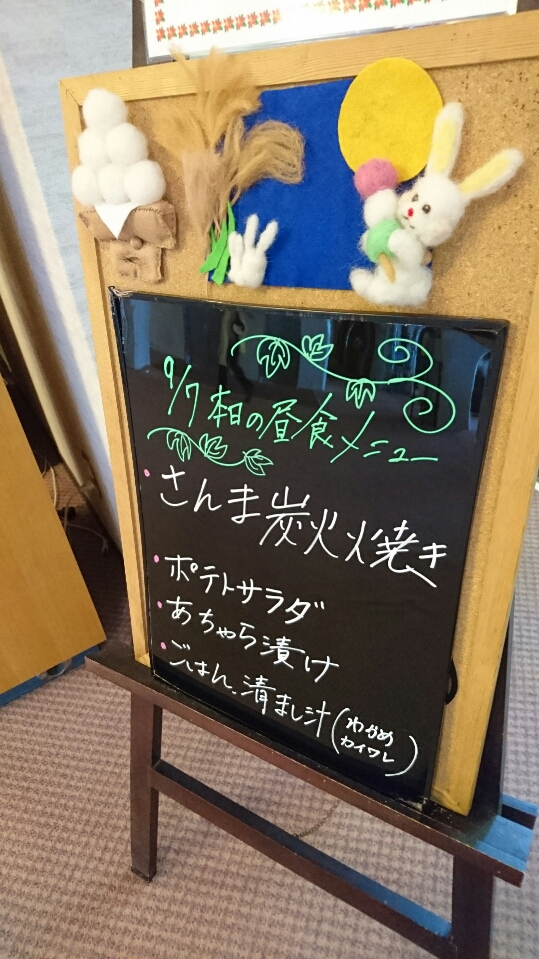 9/7 本日の昼食メニュー
・さんま炭火焼き
・ポテトサラダ
・あちゃら漬け
・ごはん、清まし汁(わかめ
カイワレ)